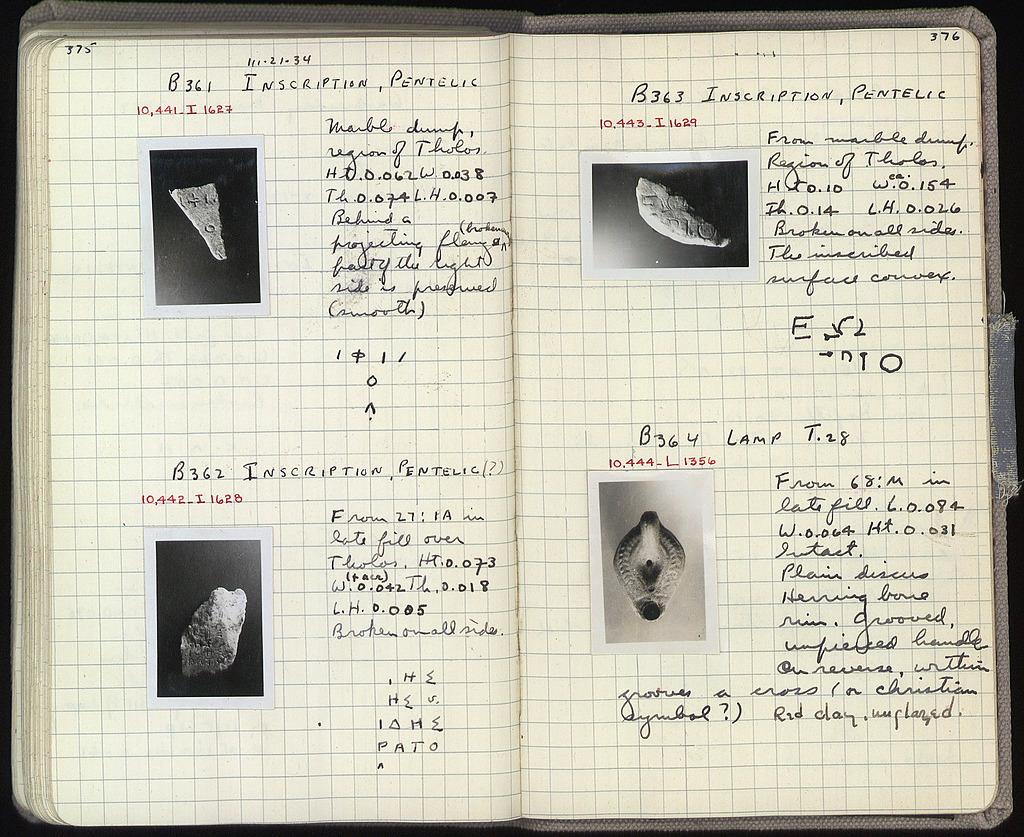 375
111-21-34
B361 INSCRIPTION, PENTELIC
10,441_I 1627
Marble dump,
region of Tholos.
Ht. 0.062 W. 0.038
Th. 0.074 L.H. 0.007
Behind a
(broken)
projecting
part of the right
side is preserved
(smooth)
Ι Φ Ι /
Ο
B362 INSCRIPTION, PENTELIC(?)
10,442_I 1628
From 27:ΙΑ in
late fill over
Tholos. HT. 0.073
W. 0.042 Th. 0.018
L.H. 0.005
Broken on all sides.
, Η Σ
Η Σ v.
Ι Δ Η Σ
Ρ Α Τ Ο
376
B363 INSCRIPTION, PENTELIC
10,443_I 1629
From marble dump.
Region of Tholos.
Ht 0.10 W. ca. 0.154
Th. 0.14 L.H. 0.026
Broken on all sides.
The inscribed
surface convex.
B364 LAMP T.28
10,444_L 1356
From 68:M in
late fill. L. 0.084
W. 0.064 Ht. 0.031
Intact.
Plain discus
Herring bone
rim. Grooved,
unpierced handle
On reverse, within
grooves a cross (or christian
symbol?) Red clay, unglazed.